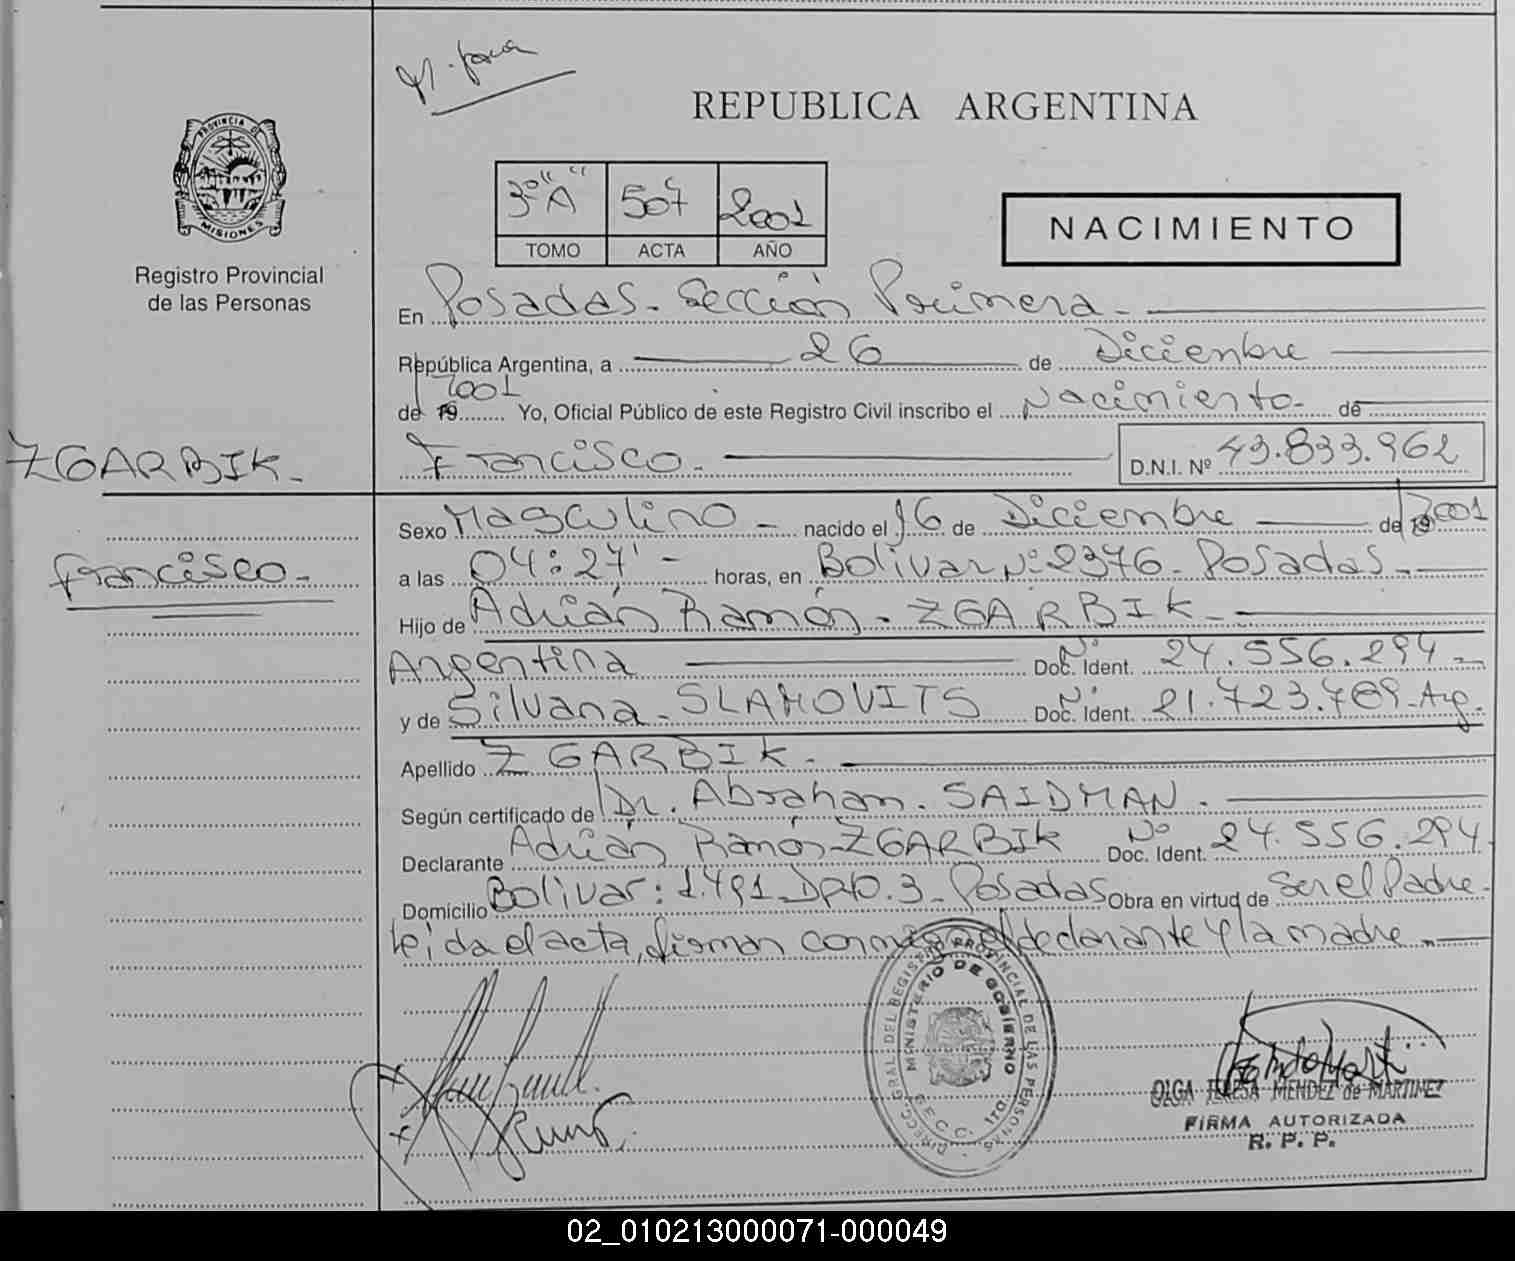 REPUBLICA ARGENTINA
PROVINCIA DE
MISIONES
Registro Provincial
de las Personas
3º "A" 507 2001
TOMO ACTA AÑO
NACIMIENTO
En Posadas - Sección Primera -
República Argentina, a 26 de Diciembre
de 19 2001 Yo, Oficial Público de este Registro Civil inscribo el Nacimiento - de
ZGARBIK -
Francisco - D.N.I. Nº 43.833.962
Francisco -
Sexo Masculino - nacido el 16 de Diciembre de 19 2001
a las 04:27' - horas, en Bolivar Nº 2376 - Posadas -
Hijo de Adrián Ramón - ZGARBIK -
Argentina Doc. Ident. Nº 24.556.294 -
y de Silvana - SLAMOVITS Doc. Ident. Nº 21.723.789 - Arg.
Apellido ZGARBIK -
Según certificado de Dr. Abraham - SAIDMAN -
Declarante Adrián Ramón - ZGARBIK Doc. Ident. Nº 24.556.294
Domicilio Bolivar: 1.491 - Dpto. 3 - Posadas Obra en virtud de Ser el Padre -
Leida el acta, firman conmigo el declarante y la madre -
DIREC. GRAL. DEL REGISTRO PROVINCIAL DE LAS PERSONAS
MINISTERIO DE GOBIERNO
OLGA TERESA MENDEZ de MARTINEZ
FIRMA AUTORIZADA
R. P. P.
02_010213000071-000049